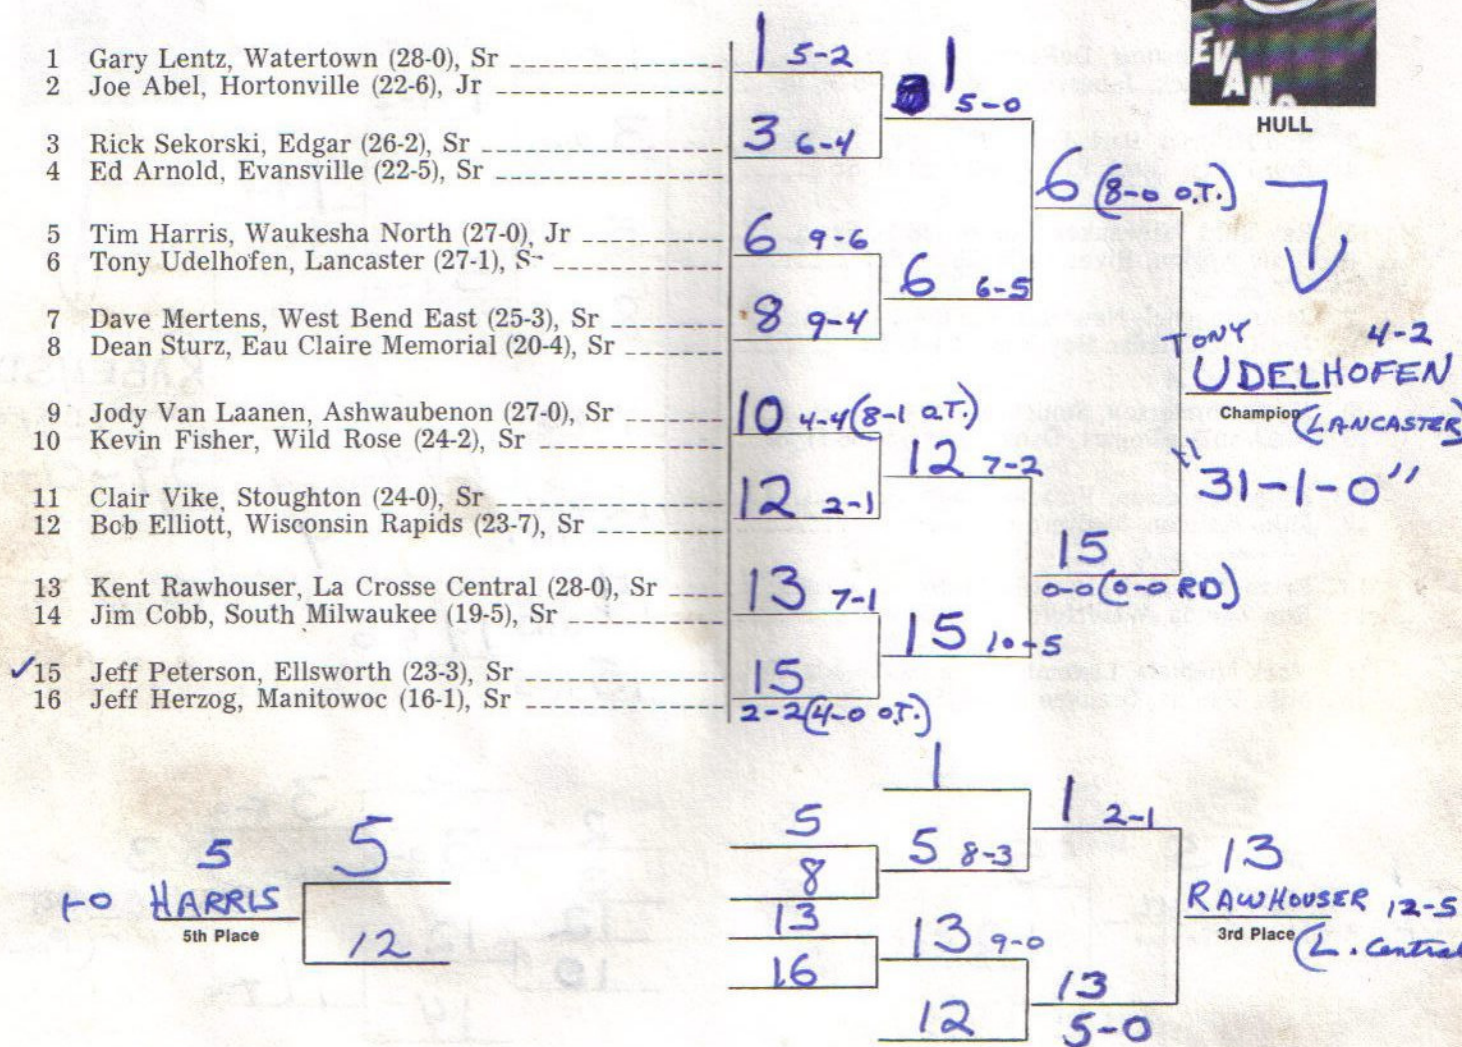 EVANS
HULL
1 Gary Lentz, Watertown (28-0), Sr
2 Joe Abel, Hortonville (22-6), Jr
3 Rick Sekorski, Edgar (26-2), Sr
4 Ed Arnold, Evansville (22-5), Sr
5 Tim Harris, Waukesha North (27-0), Jr
6 Tony Udelhofen, Lancaster (27-1), Sr
7 Dave Mertens, West Bend East (25-3), Sr
8 Dean Sturz, Eau Claire Memorial (20-4), Sr
9 Jody Van Laanen, Ashwaubenon (27-0), Sr
10 Kevin Fisher, Wild Rose (24-2), Sr
11 Clair Vike, Stoughton (24-0), Sr
12 Bob Elliott, Wisconsin Rapids (23-7), Sr
13 Kent Rawhouser, La Crosse Central (28-0), Sr
14 Jim Cobb, South Milwaukee (19-5), Sr
✓15 Jeff Peterson, Ellsworth (23-3), Sr
16 Jeff Herzog, Manitowoc (16-1), Sr
1 5-2
3 6-4
6 9-6
8 9-4
10 4-4 (8-1 O.T.)
12 2-1
13 7-1
15
2-2 (4-0 O.T.)
1
5-0
6 6-5
12 7-2
15 10-5
6 (8-0 O.T.)
15
0-0 (0-0 RD)
TONY 4-2
UDELHOFEN
Champion (LANCASTER)
"31-1-0"
5
5
1-0 HARRIS
5th Place
12
5
8
13
16
1
5 8-3
13 9-0
12
1 2-1
13
5-0
13
RAWHOUSER 12-5
3rd Place (L. Central